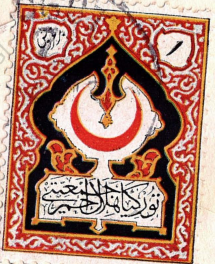 ١
توركيا هلال احمر جمعيتى